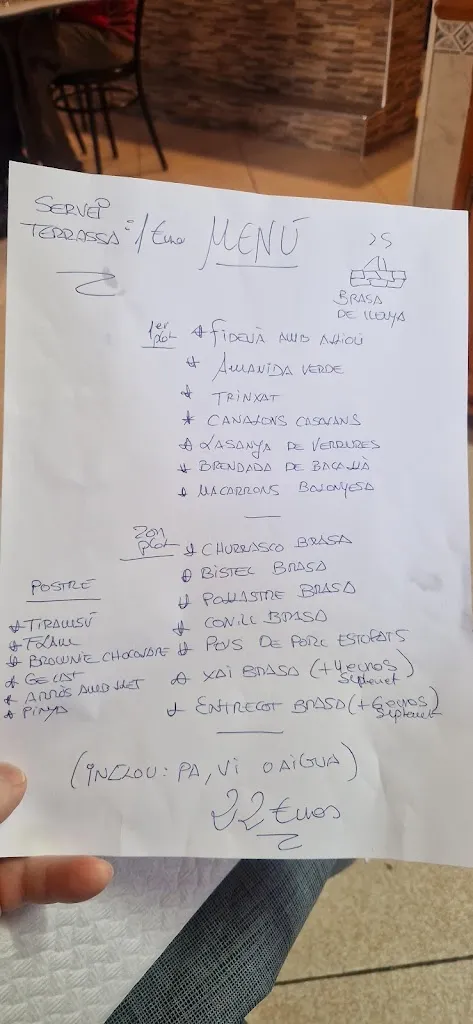 SERVEI
TERRASSA = 1 Euro
MENÚ
BRASA
DE LLENYA
1er plat
FIDEUÀ AMB ALLIOLI
AMANIDA VERDE
TRINXAT
CANALONS CASOLANS
LASANYA DE VERDURES
BRANDADA DE BACALLÀ
MACARRONS BOLONYESA
2on plat
CHURRASCO BRASA
BISTEC BRASA
POLLASTRE BRASA
CONILL BRASA
PEUS DE PORC ESTOFATS
XAI BRASA (+4 euros)
ENTRECOT BRASA (+6 euros)
POSTRE
TIRAMISÚ
FLAM
BROWNIE CHOCOLATE
GELAT
ARRÒS AMB LLET
PINYA
(INCLOU: PA, VI O AIGUA)
22 Euros